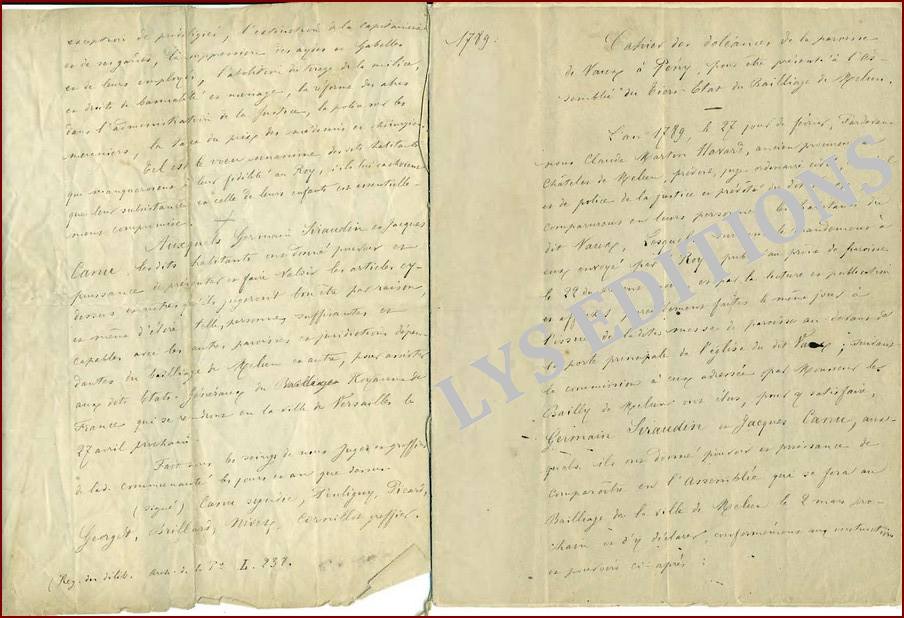 exception de privilégiés, l'extinction de la capitainerie
et de ses gânes, la suppression des aydes et Gabelles
et de leurs employés, l'abolition du tirage de la milice,
en droits de bannalité et menage, la réforme des abus
dans l'administration de la Justice, la police sur les
meuniers, la taxe du prix des médecins et chirurgiens
Tel est le voeu unanime des dits habitants
qui manqueront à leur fidélité au Roy, s'ils lui cachoient
que leur subsistance et celle de leurs enfants est essentielle-
ment compromise.
Auxquels Germain Siraudin et Jacques
Canu lesdits habitants ont donné pouvoir et
puissance de présenter et faire valoir les articles cy-
dessus et autres qu'ils jugeront bon être par raison,
et même d'élire telle personne suffisantes et
capables avec les autres paroisses et jurisdictions dépen-
dantes du bailliage de Melun et autres, pour assister
aux dits Etats-Généraux du Bailliage Royaume de
France qui se tiendront en la ville de Versailles le
27 avril prochain.
Fait sous les seings de nous Juges et greffier
de lad. communauté les jours et an que dessus
(signé) Canu syndic, Pouligny, Picard,
Georget, Brillard, Nivet, Cornillot greffier.
(Reg. des délib. Arch. de la Pse I. 237.
1789.
Cahier des doléances de la paroisse
de Vaux à Peny, pour être présenté à l'As-
semblée du Tiers-Etat du Bailliage de Melun.
L'an 1789, le 27 jour de février, Pardevant
nous Claude Martin Havard, ancien procureur au
Châtelet de Melun, prévost, juge ordinaire civil
et de police de la justice et prévôté du dit
comparurent en leurs personnes les habitants du
dit Vaux, Lesquels suivant le mandement à
eux envoyé par le Roy, publié au prône de paroisse
le 22 du et par la lecture et publication
et affiches pareillement faites le même jour à
l'issue de la dite messe de paroisse au devant de
la porte principale de l'église du dit Vaux ; suivant
la commission à eux adressée par Monsieur le
Bailly de Melun ont élus, pour y satisfaire,
Germain Siraudin et Jacques Canu, aux-
quels ils ont donné pouvoir et puissance de
comparoître en l'Assemblée qui se fera au
Bailliage de la ville de Melun le 2 mars pro-
chain et d'y déclarer conformément aux instructions
et pouvoirs ci-après :
LYS EDITIONS